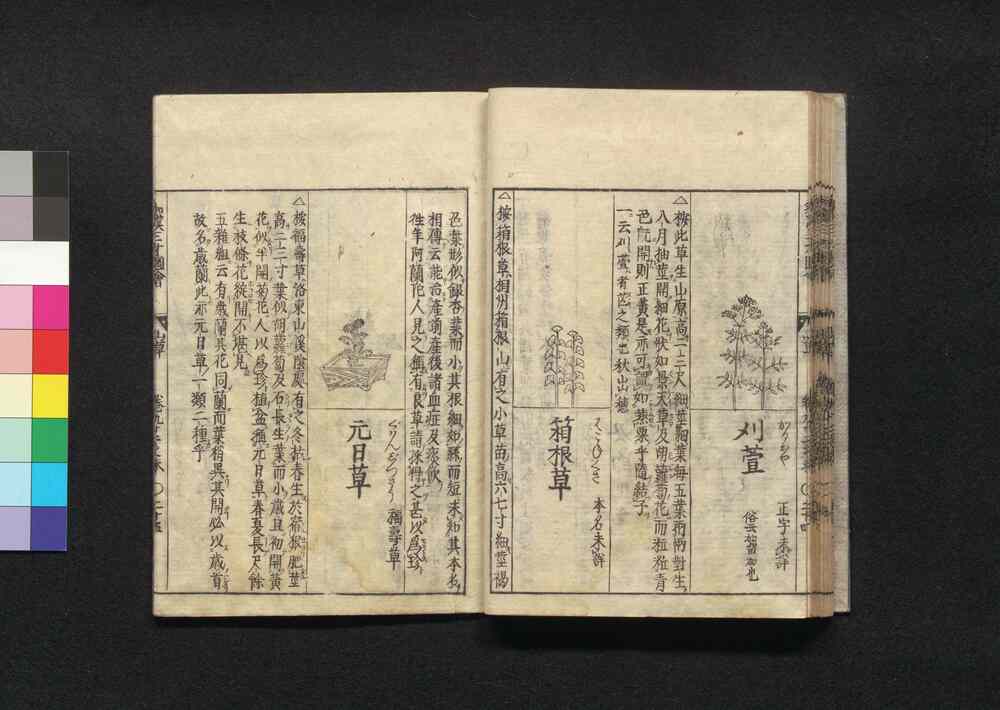 刈萱
かるかや
正字未詳
俗云加留加也
△按此草生山原高二三尺細莖細葉每五葉拵柄對生
八月抽莖開細花狀如景天草及胡蘿蔔花而粒粒青
色既開則正黃是亦可謂如蒸粟乎隨結子
一云刈萱者茫之類也秋出穗
箱根草
はこねくさ
本名未詳
△按箱根草相州箱根山有之小草苗高六七寸細莖褐
色葉形似銀杏葉而小其根細如絲而短未知其本名
相傳云能治產前產後諸血症及痰飲
徃年阿蘭陀人見之稱有良草請採得之甚以爲珍
元日草
ぐはんじつさう
福壽草
△按福壽草洛東山溪陰處有之冬枯春生於宿根肥莖
高二三寸葉似胡蘿蔔及石長生葉而小歲旦初開黃
花似半開菊花人以爲珍植盆稱元日草春夏長尺餘
生枝條花從開不堪見
五雜組云有歲蘭其花同蘭而葉稍異其開必以歲首
故名歲蘭此亦元日草一類二種乎
和漢三才圖會
山草